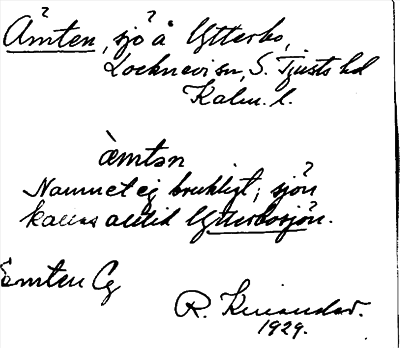 Ämten, sjö å Ytterbo,
Locknevi sn, S. Tjusts hd
Kalm. l.
àmtən
Namnet ej brukligt; sjön
kallas alltid Ytterbosjön.
Emten Cg
R. 
1929.